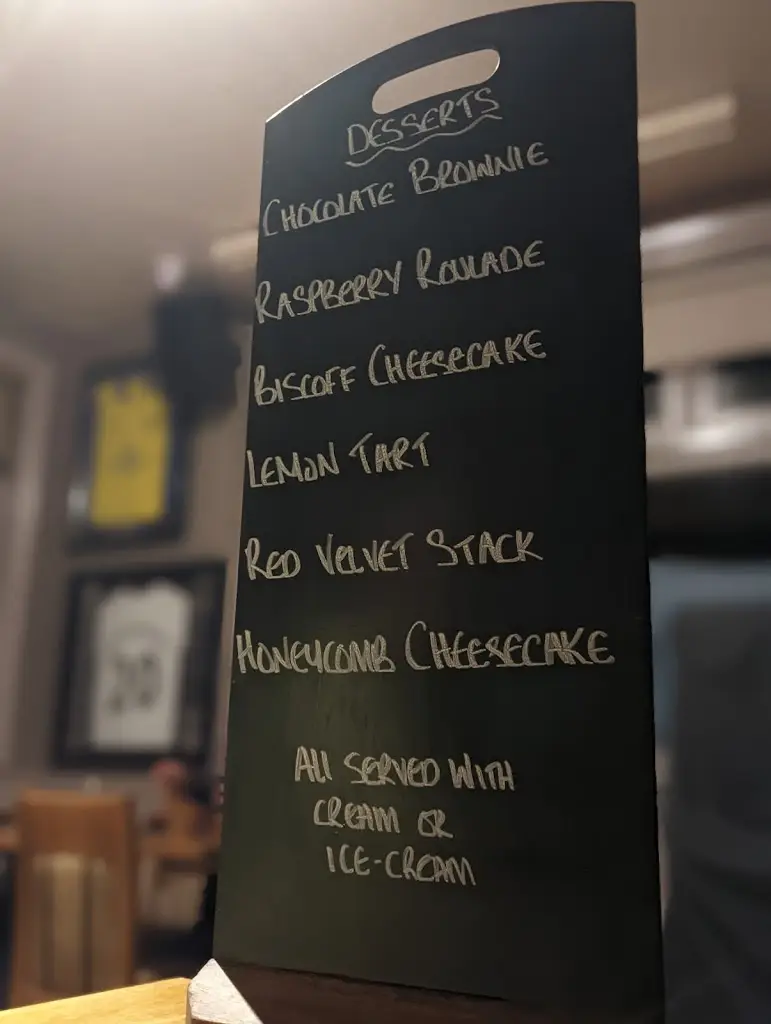 DESSERTS
CHOCOLATE BROWNIE
RASPBERRY ROULADE
BISCOFF CHEESECAKE
LEMON TART
RED VELVET STACK
HONEYCOMB CHEESECAKE
ALL SERVED WITH
CREAM OR
ICE-CREAM
20